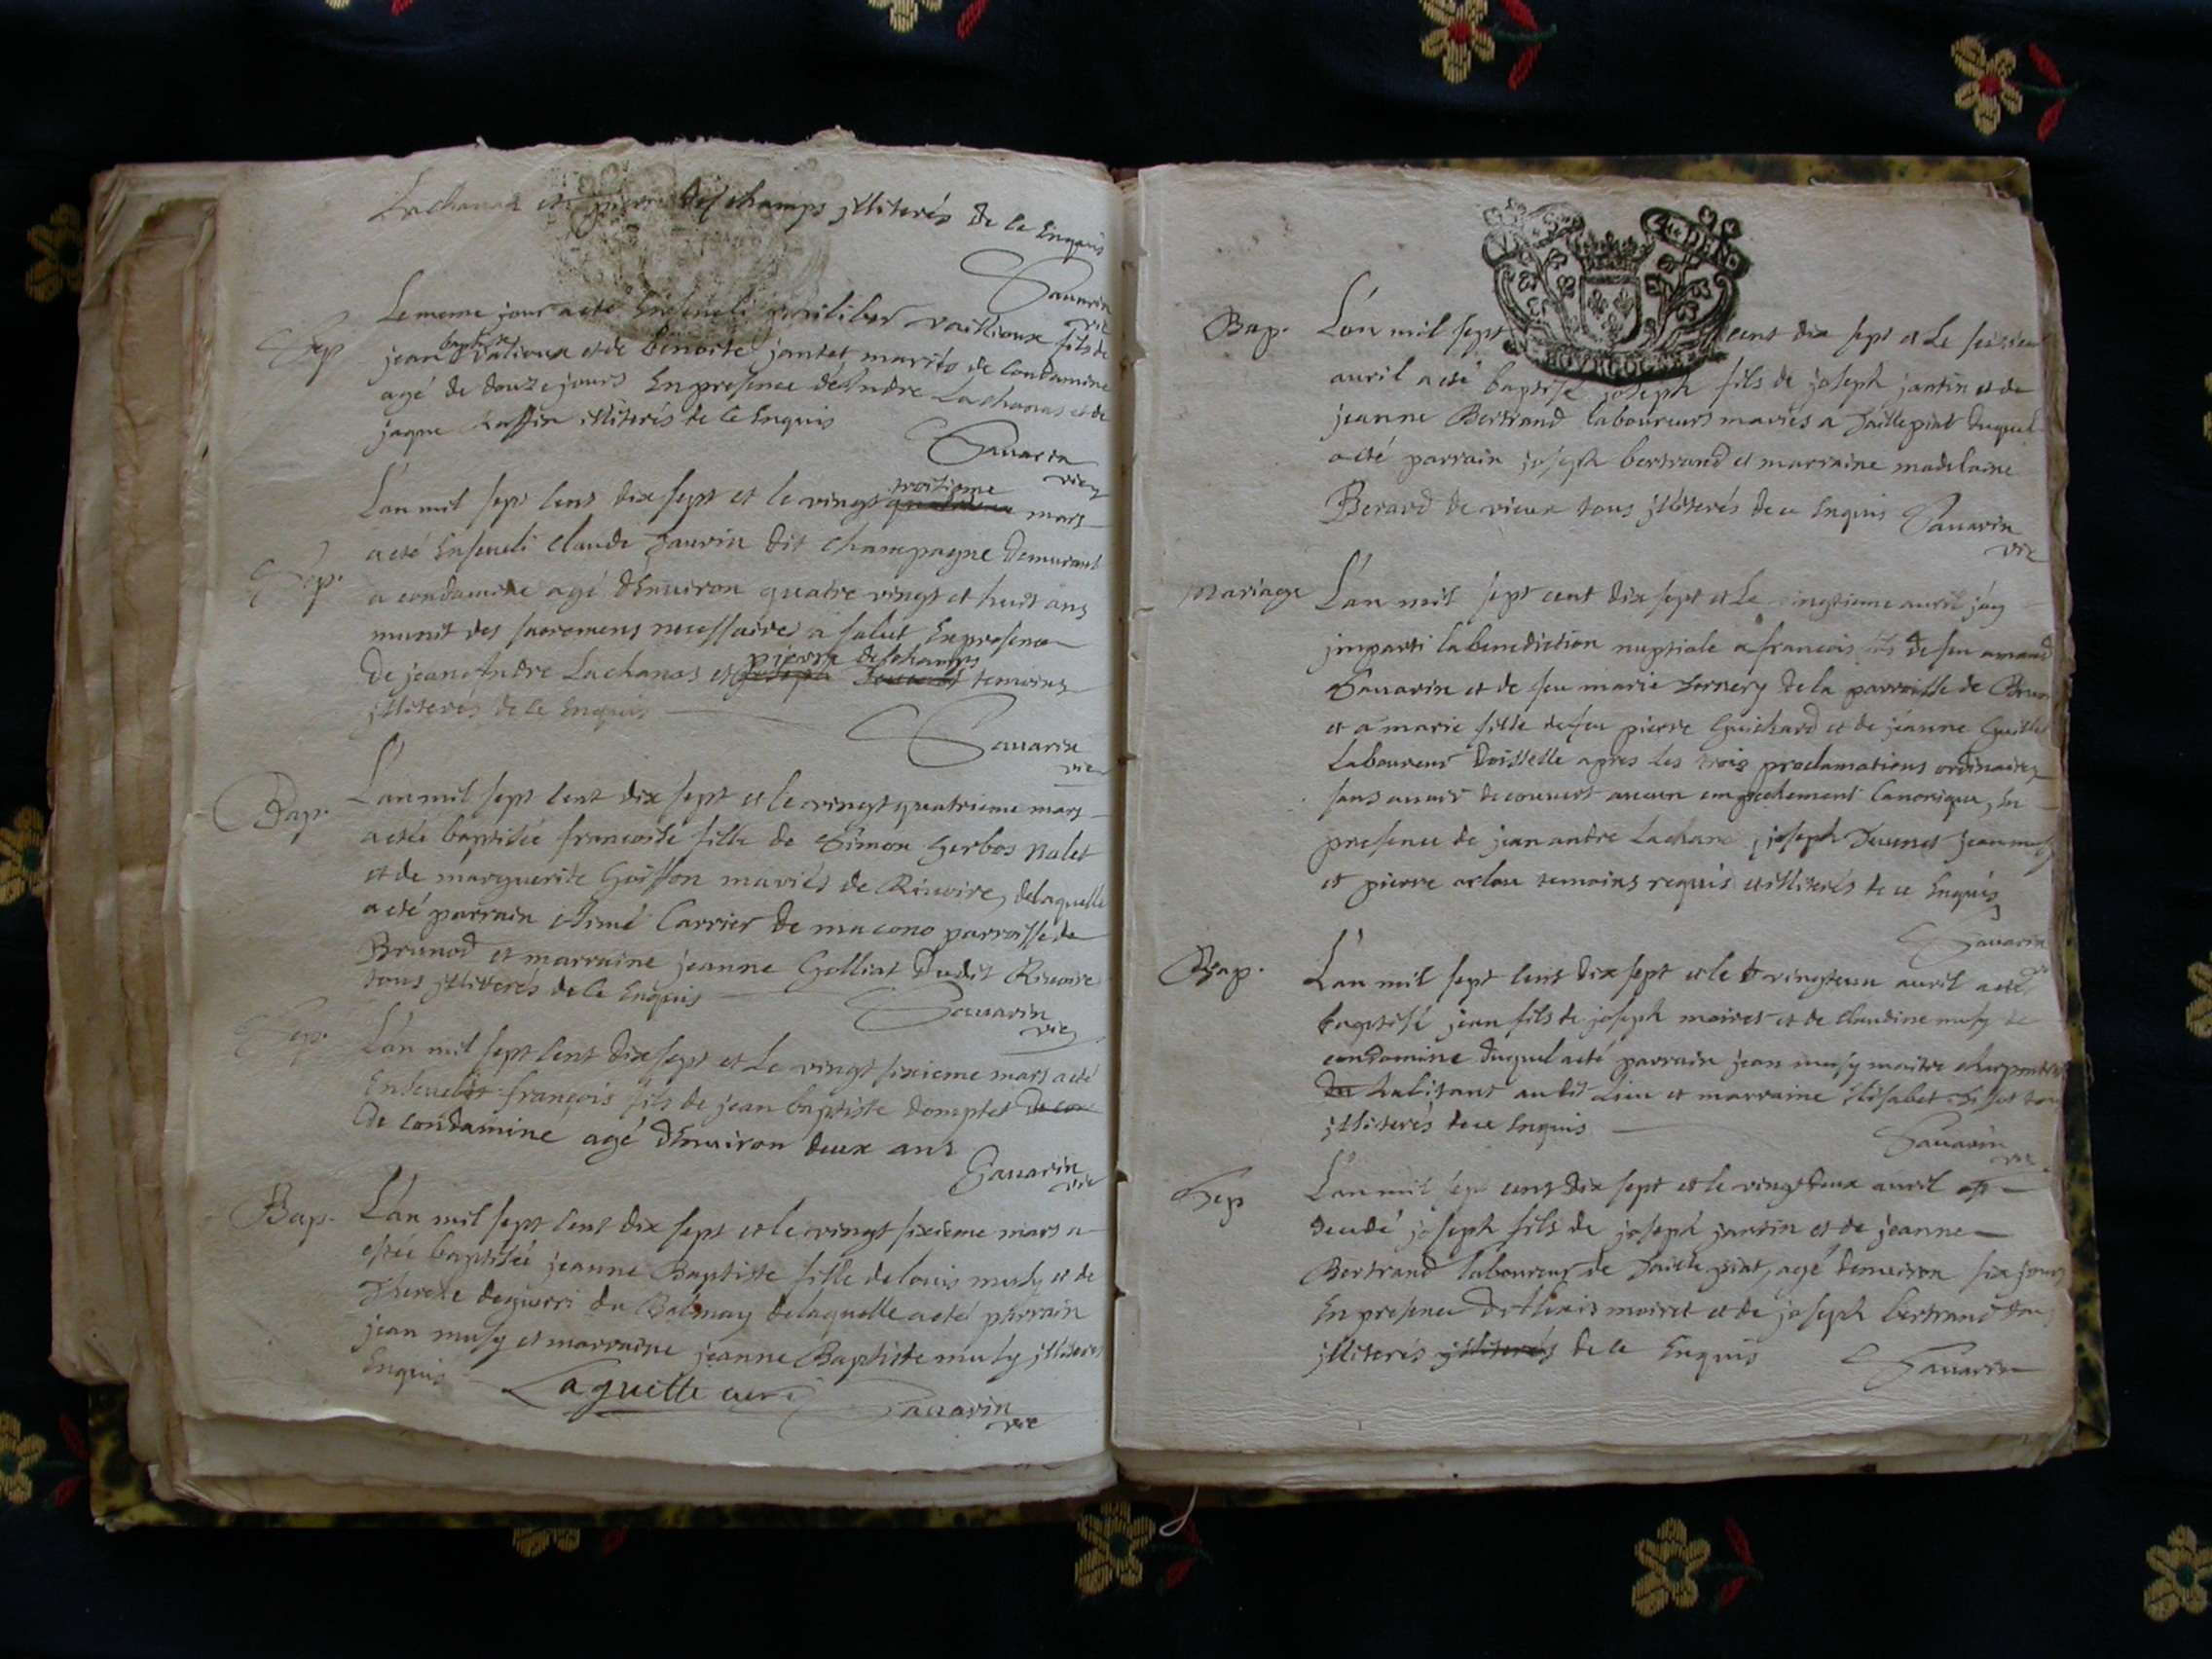 Lachanas et pierre des champs jlliterés de ce Enquis
Sauarin
vic
Sep
Le meme jour a eté Enseueli vaillioux fils de
baptiste
jean Valioux et de benoite jantet mariés de Condamine
agé de douze jours En presence d'Andre Lachanas et de
jaque Raffin illiterés de ce Enquis
Sauarin
vic
L'an mil sept cens dix sept et le vingt troisieme mars
Sep.
a eté Enseueli claude Jauvin dit champagne demurant
a condamine agé d'Enuiron quatre vingt et huit ans
munit des sacremens necessaires a salut En presence
pierre deschamps
De jean Andre Lachanas et joseph temoins
jlliterés de ce Enquis
Sauarin
vic
Bap.
L'an mil sept cent dix sept et le vingt quatrieme mars
a etée baptisée francoise fille de Simon Gerbos valet
et de marguerite Goiffon mariés de Riuoire, de laquelle
a eté parrain Aimé Carrier de macono parroisse de
Brenod et marraine jeanne Golliat dudit Riuoire
tous jlliterés de ce Enquis
Sauarin
vic
Sep.
L'an mil sept cent dix sept et Le vingt sixieme mars a eté
Enseueli françois fils de jean baptiste domptet de con
de condamine agé d'Enuiron deux ans
Sauarin
vic
Bap.
L'an mil sept cent dix sept et le vingt sixieme mars a
estée baptisée jeanne Baptiste fille de louis musy et de
Therese deguerri du Balmay de laquelle a eté parrain
jean musy et marraine jeanne Baptiste musy jlliterés
Enquis
Laguette curé
Sauarin
vic
4 DEN
BOVRGOGNE
Bap.
L'an mil sept cent dix sept et Le seizieme
auril a eté baptisé joseph fils de joseph jantin et de
jeanne Bertrand laboureurs mariés a Taillepiat duquel
a eté parrain joseph bertrand et marraine madelaine
Berard de vieux tous jlliterés de ce Enquis Sauarin
vic
Mariage
L'an mil sept cent dix sept et Le vingtieme auril jay
jmparti la benediction nuptiale a francois fils de feu amand
Sauarin et de feu marie de la parroisse de
et a marie fille de feu pierre Guichard et de jeanne
Laboureur apres les trois proclamations ordinaires
sans auoir decouuert aucun empechement Canonique, En
presence de jean andre Lachana, joseph
et pierre arlou temoins requis et illiterés de ce Enquis
Sauarin
Bap.
L'an mil sept cent dix sept et le vingt un auril a eté
baptisé jean fils de joseph moiret et de claudine musy de
condamine duquel a eté parrain jean musy maitre charpentier
habitant audit Lieu et marraine Elisabet
jlliterés de ce Enquis
Sauarin
vic
Sep
L'an mil sept cent dix sept et le vingt deux auril est
decedé joseph fils de joseph jantin et de jeanne
Bertrand laboureur de Taille piat, agé denuiron six jours
En presence d'Alexis moiret et de joseph bertrand tous
jlliterés jlliterés de ce Enquis
Sauarin